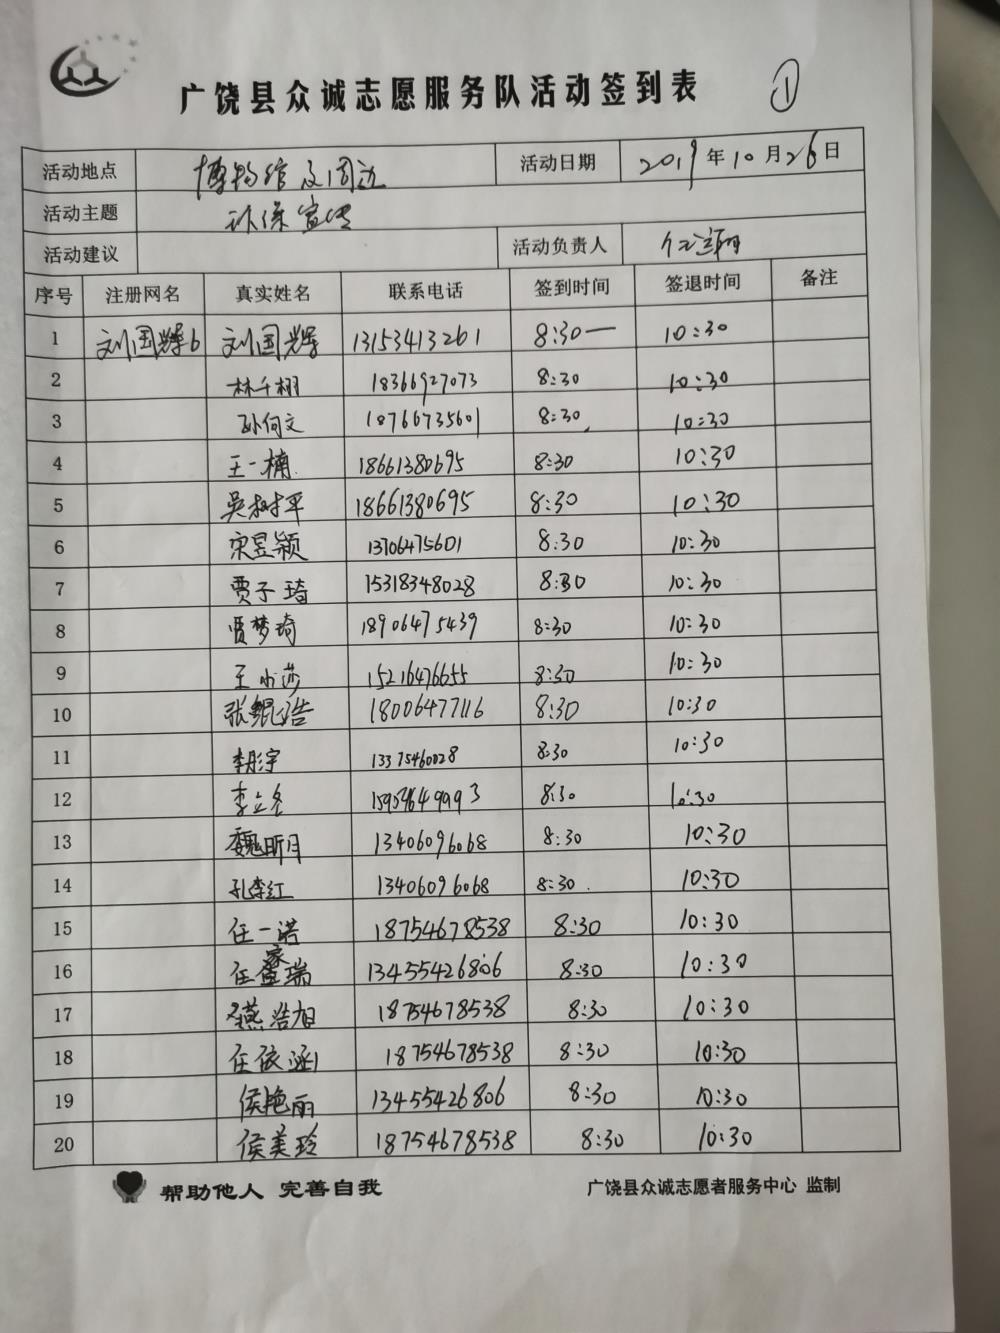 广饶县众诚志愿服务队活动签到表 ①
活动地点 博物馆及周边 活动日期 2019年10月26日
活动主题 环保宣传
活动建议 活动负责人
序号 注册网名 真实姓名 联系电话 签到时间 签退时间 备注
1 刘国辉6 刘国辉 13153413261 8:30— 10:30
2 林千栩 18366927073 8:30 10:30
3 孙何文 18766735601 8:30 10:30
4 王一楠 18661380695 8:30 10:30
5 吴树平 18661380695 8:30 10:30
6 宋昱颖 13706475601 8:30 10:30
7 贾子琦 15318348028 8:30 10:30
8 贾梦琦 18906475439 8:30 10:30
9 王小莎 15216476655 8:30 10:30
10 张鲲浩 18006477116 8:30 10:30
11 李彤宇 13375460028 8:30 10:30
12 8:30 10:30
13 魏昕月 13406096068 8:30 10:30
14 孔李红 13406096068 8:30 10:30
15 任一诺 18754678538 8:30 10:30
16 任家瑞 13455426806 8:30 10:30
17 燕浩旭 18754678538 8:30 10:30
18 任依涵 18754678538 8:30 10:30
19 侯艳丽 13455426806 8:30 10:30
20 侯美玲 18754678538 8:30 10:30
帮助他人 完善自我 广饶县众诚志愿者服务中心 监制